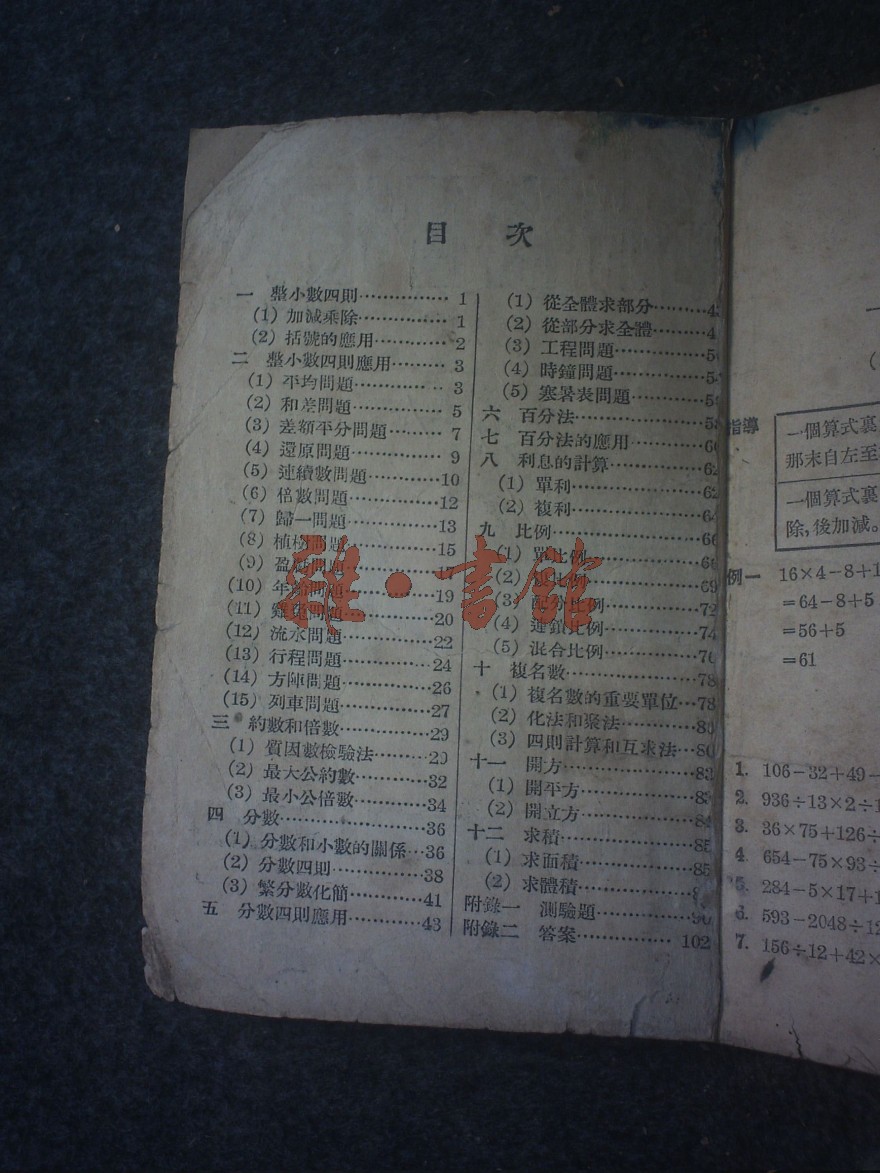 目 次
一 整小數四則…………… 1
(1) 加減乘除…………… 1
(2) 括號的應用………… 2
二 整小數四則應用……… 3
(1) 平均問題…………… 3
(2) 和差問題…………… 5
(3) 差額平分問題……… 7
(4) 還原問題…………… 9
(5) 連續數問題…………10
(6) 倍數問題……………12
(7) 歸一問題……………13
(8) 植樹問題……………15
(9) 盈
(10) 年齡問題……………19
(11) 雞兔問題……………20
(12) 流水問題……………22
(13) 行程問題……………24
(14) 方陣問題……………26
(15) 列車問題……………27
三 約數和倍數……………29
(1) 質因數檢驗法………29
(2) 最大公約數…………32
(3) 最小公倍數…………34
四 分數……………………36
(1) 分數和小數的關係…36
(2) 分數四則……………38
(3) 繁分數化簡…………41
五 分數四則應用…………43
(1) 從全體求部分………
(2) 從部分求全體………
(3) 工程問題……………
(4) 時鐘問題……………
(5) 寒暑表問題…………
六 百分法…………………58
七 百分法的應用…………60
八 利息的計算……………62
(1) 單利…………………62
(2) 複利…………………64
九 比例……………………66
(1) 單比例………………66
(2) 複比例………………69
(3) 配分比例……………72
(4) 連鎖比例……………74
(5) 混合比例……………76
十 複名數…………………78
(1) 複名數的重要單位…78
(2) 化法和聚法…………80
(3) 四則計算和互求法…80
十一 開方…………………83
(1) 開平方………………83
(2) 開立方………………84
十二 求積…………………85
(1) 求面積………………85
(2) 求體積………………
附錄一 測驗題……………90
附錄二 答案……………… 102
雜·書館
指導
一個算式裏
那末自左至
一個算式裏
除,後加減。
例一 16×4−8+1
=64−8+5
=56+5
=61
1. 106−32+49−
2. 936÷13×2÷1
3. 36×75+126÷
4. 654−75×93÷
5. 284−5×17+1
6. 593−2048÷12
7. 156÷12+42×